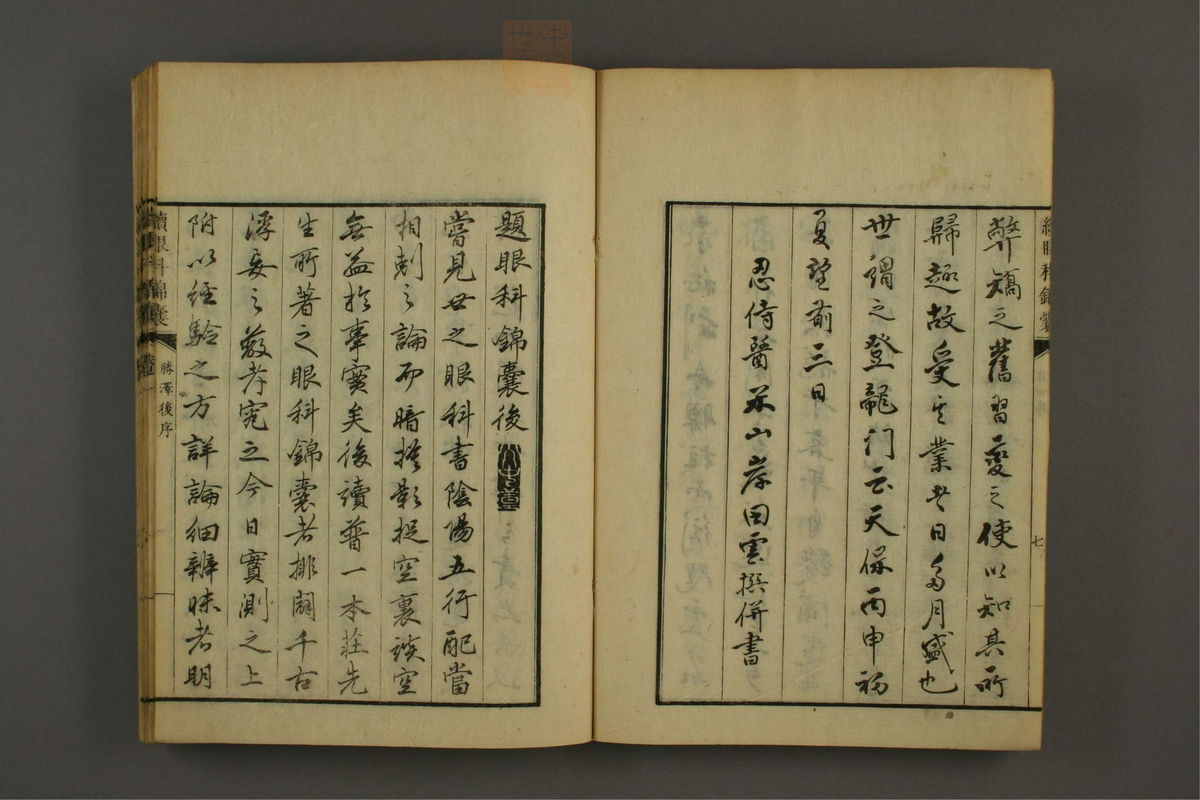 續眼科錦囊
七
弊矯之舊習變之使以知其所
歸趣故受其業者日多月盛也
世謂之登龍门云天保丙申初
夏望前三日
忍侍醫米山岸田雲撰併書
題眼科錦囊後
嘗見世之眼科書陰陽五行配當
相剋之論而暗摸影捉空裏談空
無益於事實矣後讀普一本莊先
生所著之眼科錦囊者排闢千古
浮妄之藪考究之今日實測之上
附以經驗之方詳論細辨昧者明
續眼科錦囊
勝澤後序
一